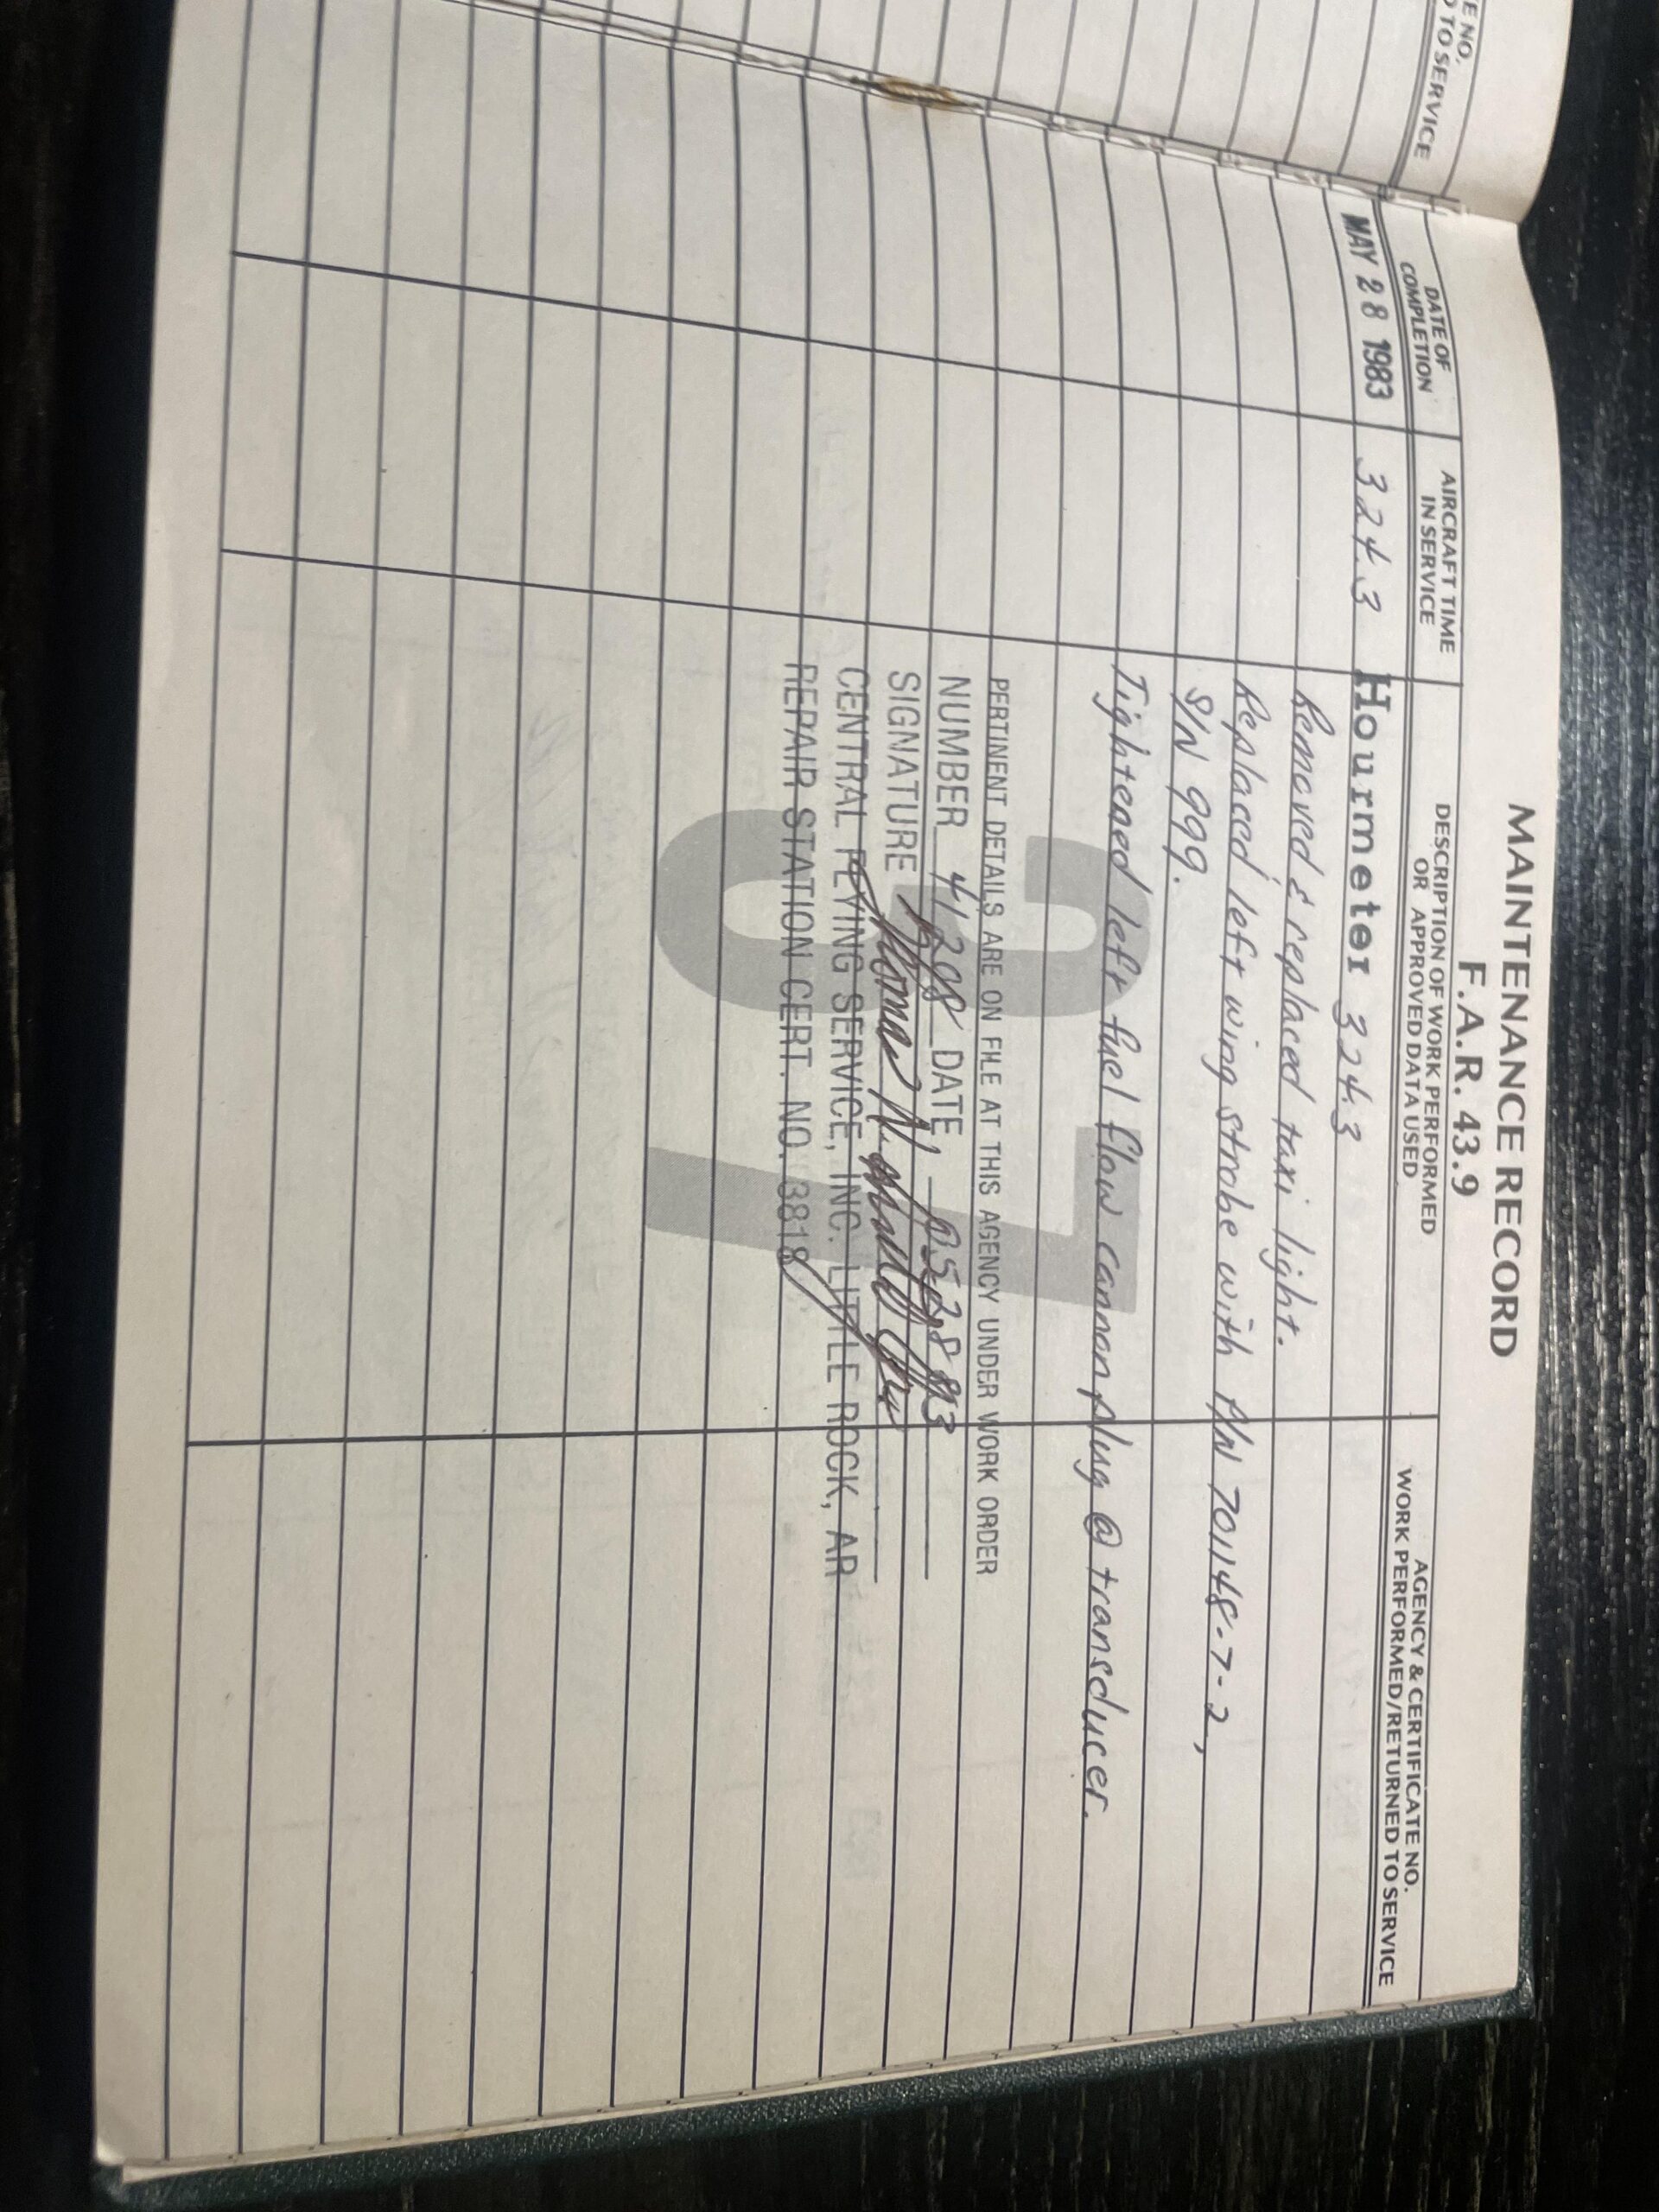 E NO.
D TO SERVICE
MAINTENANCE RECORD
F.A.R. 43.9
DATE OF
COMPLETION
AIRCRAFT TIME
IN SERVICE
DESCRIPTION OF WORK PERFORMED
OR APPROVED DATA USED
AGENCY & CERTIFICATE NO.
WORK PERFORMED/RETURNED TO SERVICE
MAY 28 1983 324.3 Hourmeter 324.3
Removed & replaced taxi light.
Replaced left wing strobe with P/N 701148-7-2,
S/N 999.
Tightened left fuel flow cannon plug @ transducer.
PERTINENT DETAILS ARE ON FILE AT THIS AGENCY UNDER WORK ORDER
NUMBER 41298 DATE, 052883
SIGNATURE Thomas N.
CENTRAL FLYING SERVICE, INC. LITTLE ROCK, AR
REPAIR STATION CERT. NO. 3818